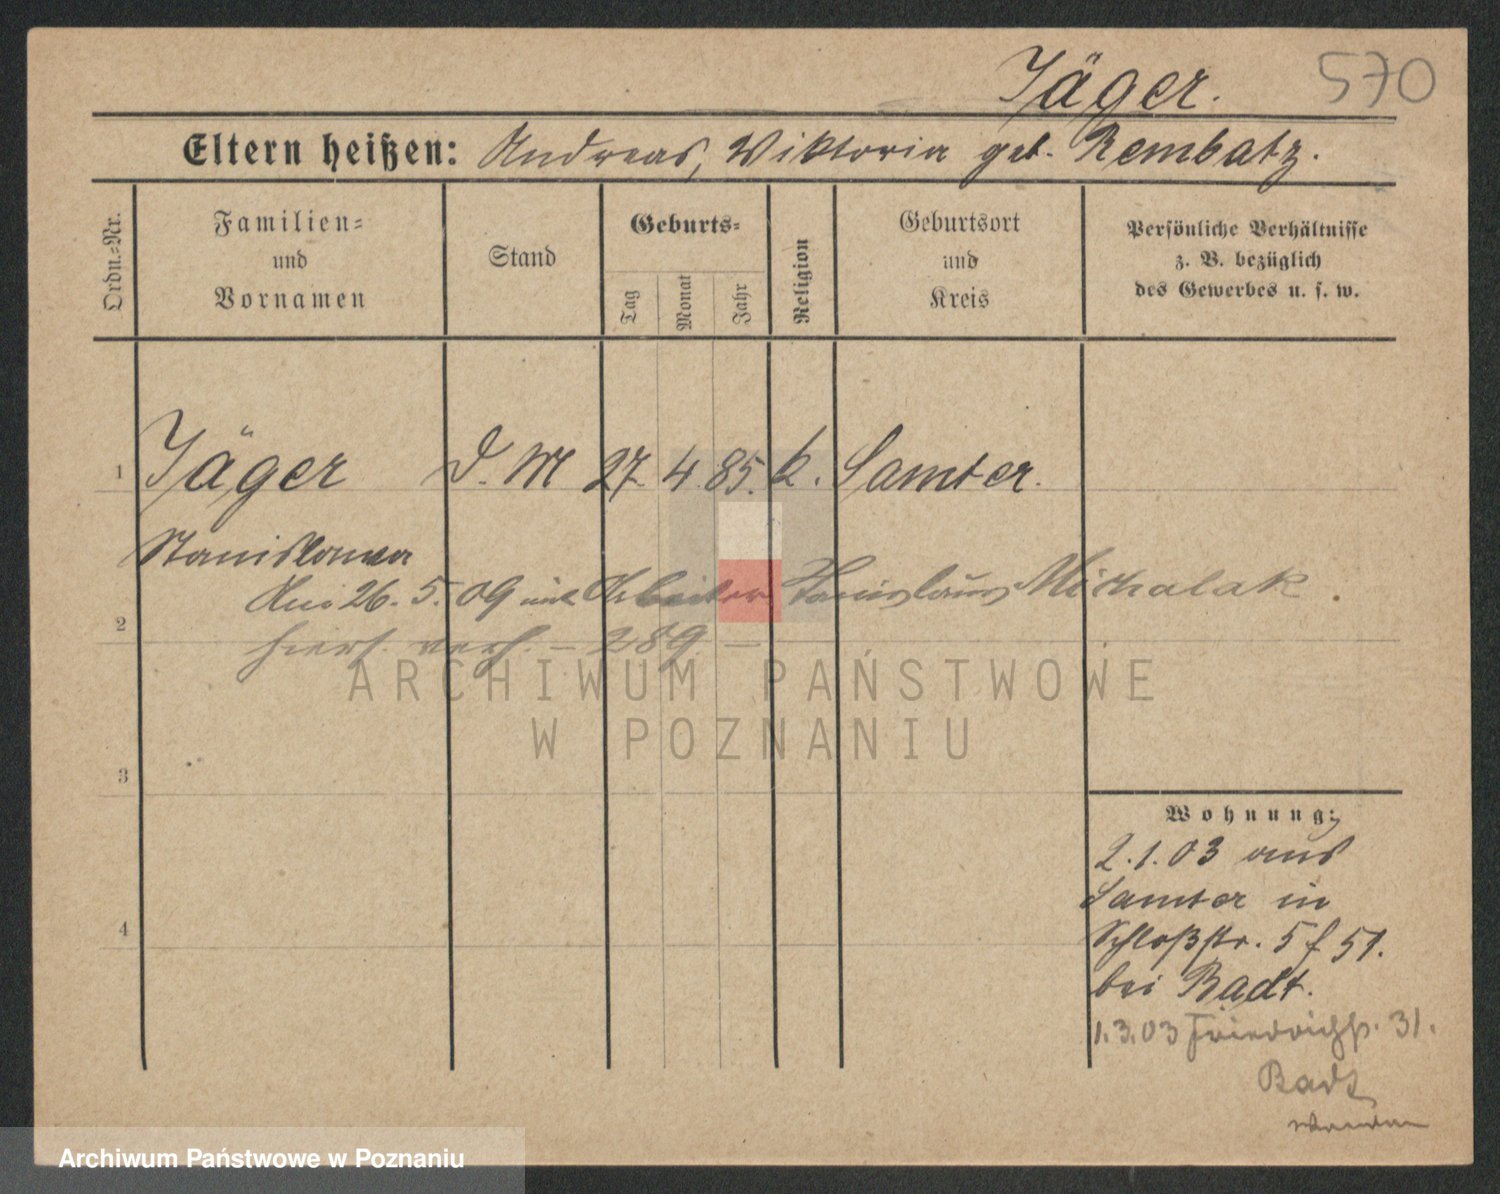 Jäger. 570
Eltern heißen: Andreas, Wiktoria geb. Rembatz.
Ordn.-Nr.
Familien-
und
Vornamen
Stand
Geburts-
Tag
Monat
Jahr
Religion
Geburtsort
und
Kreis
Persönliche Verhältnisse
z. B. bezüglich
des Gewerbes u. s. w.
1 Jäger D. M 27. 4. 85. k. Samter.
Stanislawa
Am 26. 5. 09 mit Arbeiter Stanislaus Michalak.
2
hiers. verh. – 289 –
ARCHIWUM PAŃSTWOWE
W POZNANIU
3
Wohnung:
2.1.03 aus
Samter in
4 Schloßstr. 5 f 51.
bei Badt.
1.3.03 Friedrichstr. 31.
Badt
Archiwum Państwowe w Poznaniu